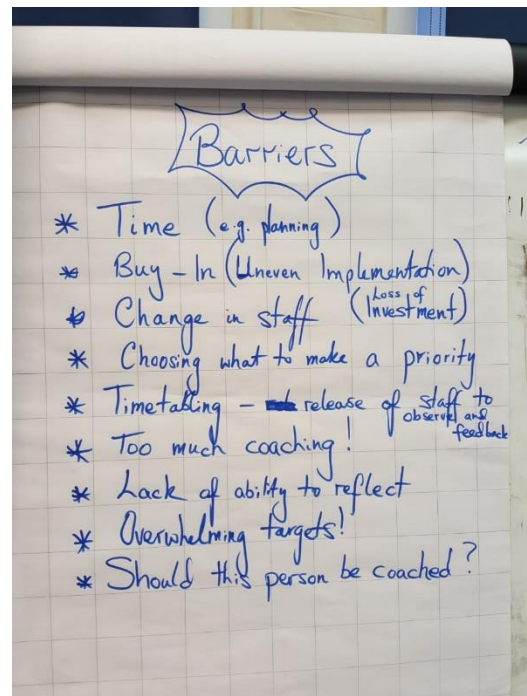 Barriers
* Time (e.g. planning)
* Buy-In (Uneven Implementation)
* Change in staff (Loss of Investment)
* Choosing what to make a priority
* Timetabling - release of staff to observe and feedback
* Too much coaching!
* Lack of ability to reflect
* Overwhelming targets!
* Should this person be coached?